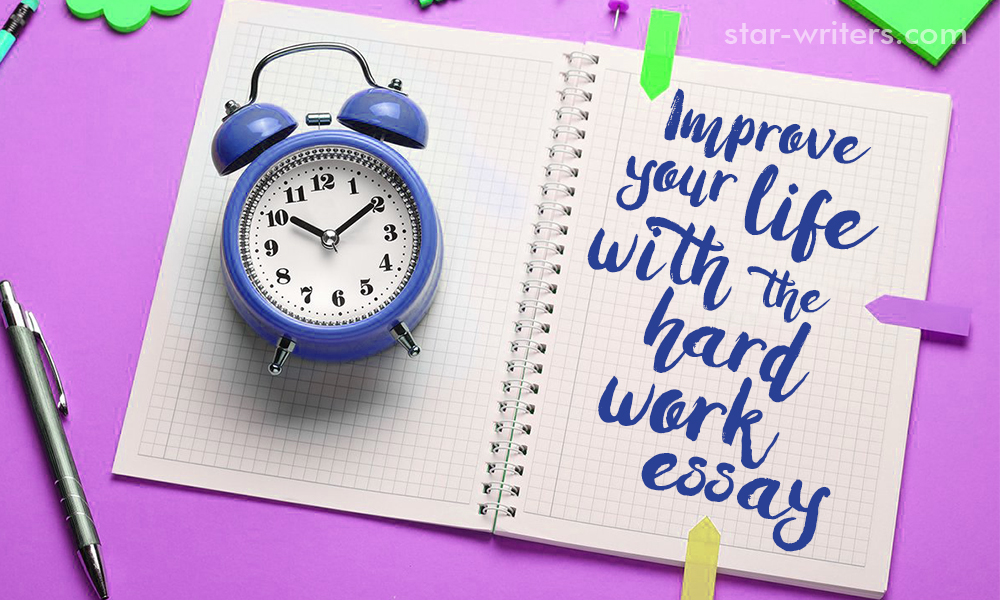 star-writers.com
12 1 2 3 4 5 6 7 8 9 10 11
Improve
your life
with the
hard
work
essay